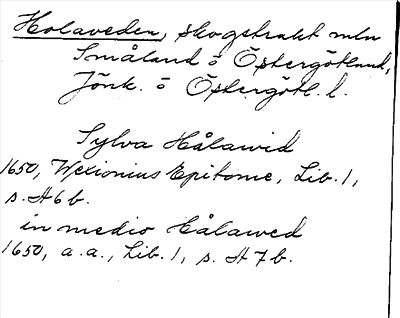 Holaveden, skogstrakt mln
Småland o Östergötland,
Jönk. o Östergötl. l.
Sylva Hålawid
1650, Wexionius Epitome, Lib. 1,
s. H6b.
in medio Hålawed
1650, a.a., Lib. 1, s. H7b.